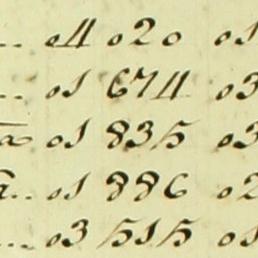 ... 04 020 01
... 01 674 03
a 01 835 03
a.. 01 886 02
.... 03 515 01